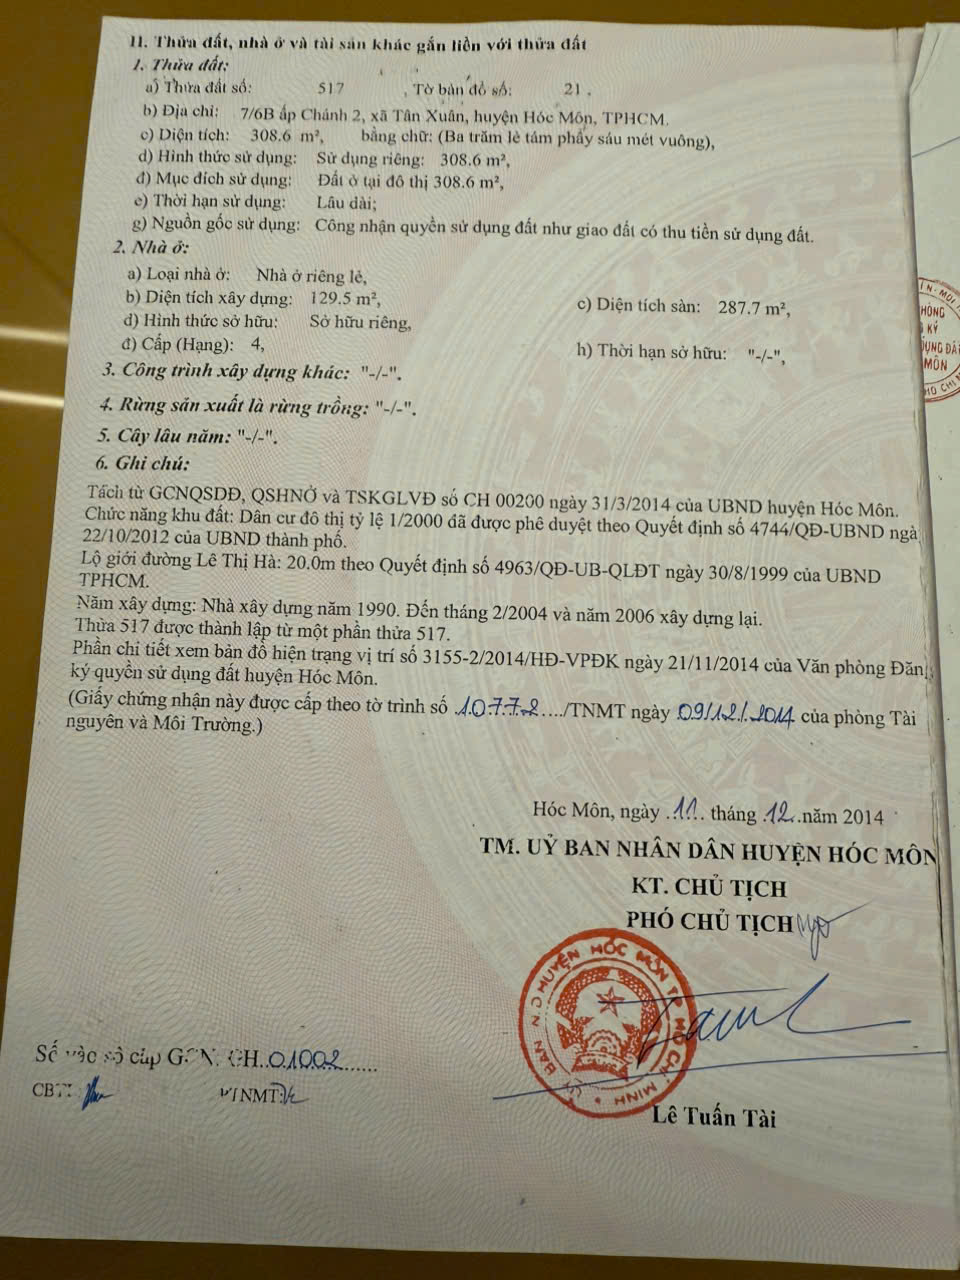 II. Thửa đất, nhà ở và tài sản khác gắn liền với thửa đất
1. Thửa đất:
a) Thửa đất số: 517 , Tờ bản đồ số: 21 ,
b) Địa chỉ: 7/6B ấp Chánh 2, xã Tân Xuân, huyện Hóc Môn, TPHCM.
c) Diện tích: 308.6 m², bằng chữ: (Ba trăm lẻ tám phẩy sáu mét vuông),
d) Hình thức sử dụng: Sử dụng riêng: 308.6 m²,
đ) Mục đích sử dụng: Đất ở tại đô thị 308.6 m²,
e) Thời hạn sử dụng: Lâu dài;
g) Nguồn gốc sử dụng: Công nhận quyền sử dụng đất như giao đất có thu tiền sử dụng đất.
2. Nhà ở:
a) Loại nhà ở: Nhà ở riêng lẻ,
b) Diện tích xây dựng: 129.5 m², c) Diện tích sàn: 287.7 m²,
d) Hình thức sở hữu: Sở hữu riêng,
đ) Cấp (Hạng): 4, h) Thời hạn sở hữu: "-/-",
3. Công trình xây dựng khác: "-/-".
4. Rừng sản xuất là rừng trồng: "-/-".
5. Cây lâu năm: "-/-".
6. Ghi chú:
Tách từ GCNQSDĐ, QSHNỞ và TSKGLVĐ số CH 00200 ngày 31/3/2014 của UBND huyện Hóc Môn.
Chức năng khu đất: Dân cư đô thị tỷ lệ 1/2000 đã được phê duyệt theo Quyết định số 4744/QĐ-UBND ngà
22/10/2012 của UBND thành phố.
Lộ giới đường Lê Thị Hà: 20.0m theo Quyết định số 4963/QĐ-UB-QLĐT ngày 30/8/1999 của UBND
TPHCM.
Năm xây dựng: Nhà xây dựng năm 1990. Đến tháng 2/2004 và năm 2006 xây dựng lại.
Thửa 517 được thành lập từ một phần thửa 517.
Phần chi tiết xem bản đồ hiện trạng vị trí số 3155-2/2014/HĐ-VPĐK ngày 21/11/2014 của Văn phòng Đăn
ký quyền sử dụng đất huyện Hóc Môn.
(Giấy chứng nhận này được cấp theo tờ trình số 10772..../TNMT ngày 09/12/2014 của phòng Tài
nguyên và Môi Trường.)
Hóc Môn, ngày .11.. tháng .12..năm 2014
TM. UỶ BAN NHÂN DÂN HUYỆN HÓC MÔN
KT. CHỦ TỊCH
PHÓ CHỦ TỊCH
BAN N.D HUYỆN HÓC MÔN TP HỒ CHÍ MINH
Lê Tuấn Tài
Số vào sổ cấp GCN: CH..01002........